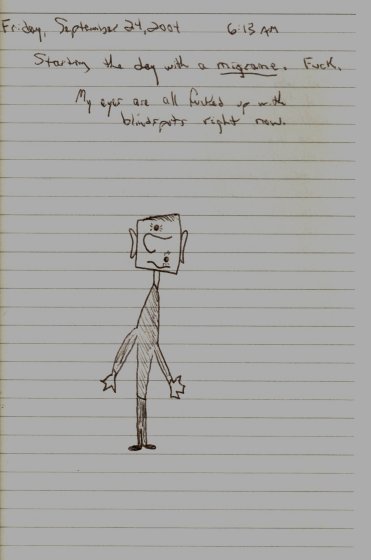 Friday, September 24, 2004 6:13 AM
Starting the day with a migrane. Fuck.
My eyes are all fucked up with
blindspots right now.